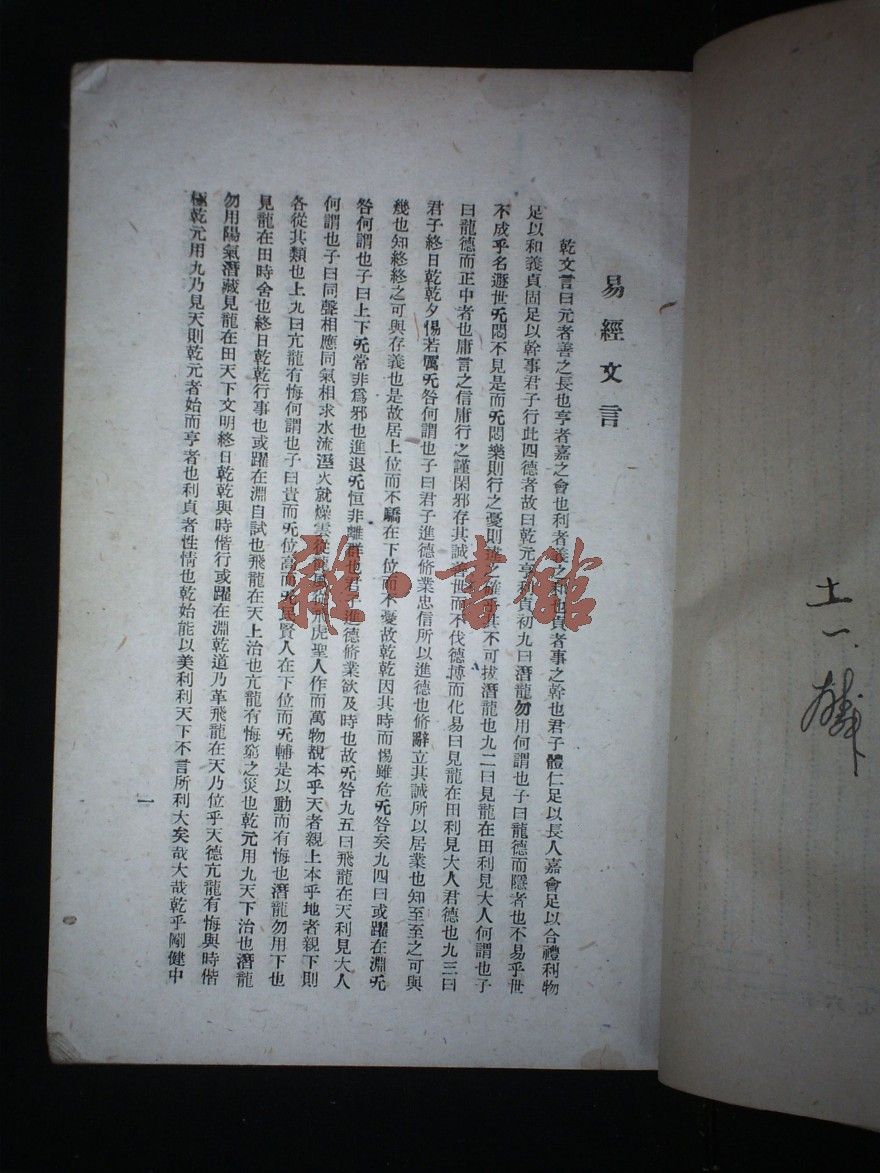 易經文言
乾文言曰元者善之長也亨者嘉之會也利者義之和也貞者事之幹也君子體仁足以長人嘉會足以合禮利物
足以和義貞固足以幹事君子行此四德者故曰乾元亨利貞初九曰潛龍勿用何謂也子曰龍德而隱者也不易乎世
不成乎名遯世旡悶不見是而旡悶樂則行之憂則違之確乎其不可拔潛龍也九二曰見龍在田利見大人何謂也子
曰龍德而正中者也庸言之信庸行之謹閑邪存其誠善世而不伐德博而化易曰見龍在田利見大人君德也九三曰
君子終日乾乾夕惕若厲旡咎何謂也子曰君子進德脩業忠信所以進德也脩辭立其誠所以居業也知至至之可與
幾也知終終之可與存義也是故居上位而不驕在下位而不憂故乾乾因其時而惕雖危旡咎矣九四曰或躍在淵旡
咎何謂也子曰上下旡常非爲邪也進退旡恒非離群也君子進德脩業欲及時也故旡咎九五曰飛龍在天利見大人
何謂也子曰同聲相應同氣相求水流溼火就燥雲從龍風從虎聖人作而萬物覩本乎天者親上本乎地者親下則
各從其類也上九曰亢龍有悔何謂也子曰貴而旡位高而旡民賢人在下位而旡輔是以動而有悔也潛龍勿用下也
見龍在田時舍也終日乾乾行事也或躍在淵自試也飛龍在天上治也亢龍有悔窮之災也乾元用九天下治也潛龍
勿用陽氣潛藏見龍在田天下文明終日乾乾與時偕行或躍在淵乾道乃革飛龍在天乃位乎天德亢龍有悔與時偕
極乾元用九乃見天則乾元者始而亨者也利貞者性情也乾始能以美利利天下不言所利大矣哉大哉乾乎剛健中
一
雜·書館